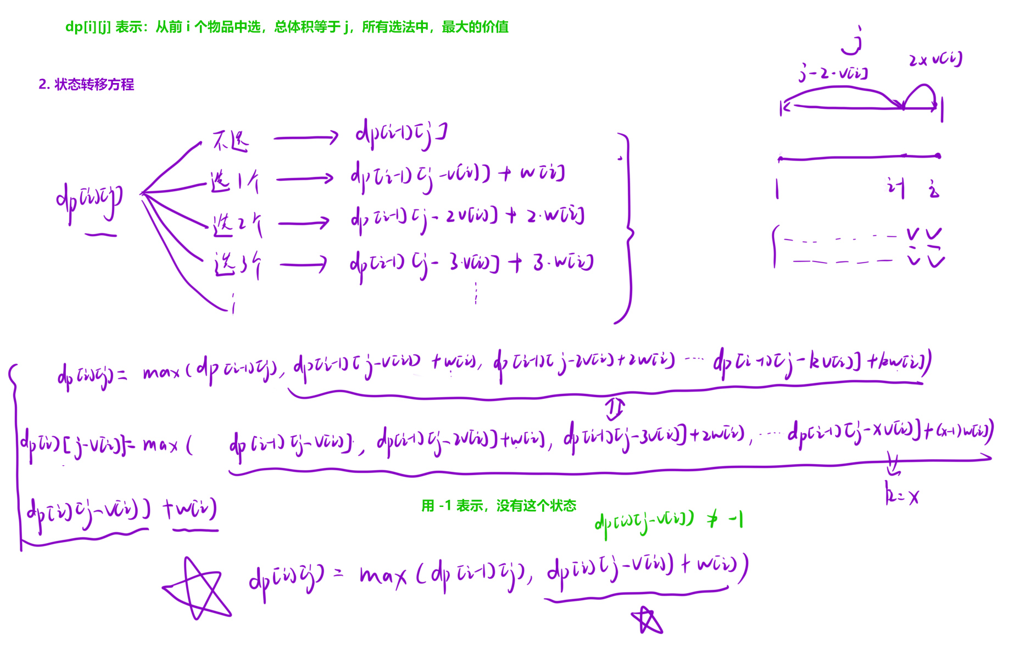 dp[i][j] 表示：从前 i 个物品中选，总体积等于 j，所有选法中，最大的价值
j
j-2·v[i] 2×v[i]
2. 状态转移方程
不选 dp[i-1][j]
选1个 dp[i-1][j-v[i]] + w[i]
dp[i][j]
选2个 dp[i-1][j-2v[i]] + 2·w[i]
选3个 dp[i-1][j-3·v[i]] + 3·w[i]
i-1 i
dp[i][j] = max(dp[i-1][j], dp[i-1][j-v[i]] + w[i], dp[i-1][j-2v[i]]+2w[i] ··· dp[i-1][j-kv[i]]+kw[i])
dp[i][j-v[i]] = max( dp[i-1][j-v[i]], dp[i-1][j-2v[i]]+w[i], dp[i-1][j-3v[i]]+2w[i], ··· dp[i-1][j-xv[i]]+(x-1)w[i])
k=x
dp[i][j-v[i]] + w[i]
用 -1 表示，没有这个状态
dp[i][j-v[i]] ≠ -1
dp[i][j] = max(dp[i-1][j], dp[i][j-v[i]]+w[i])